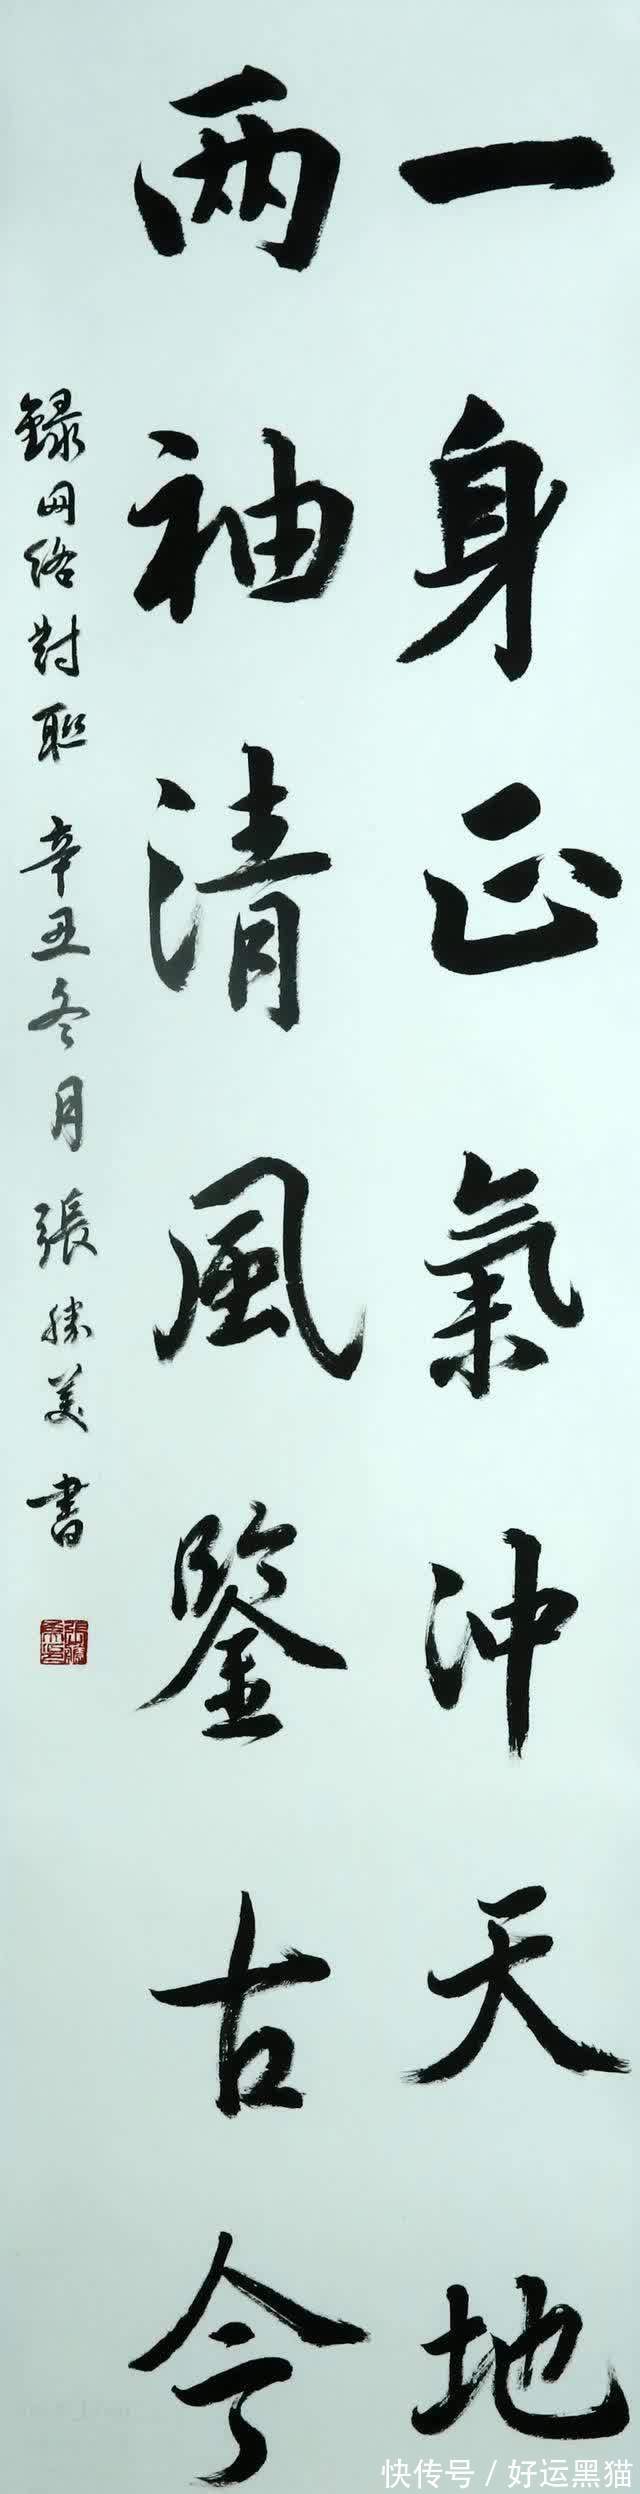 一身正氣沖天地
两袖清風鑒古今
録网络對联辛丑冬月張勝美書
快传号/好运黑猫